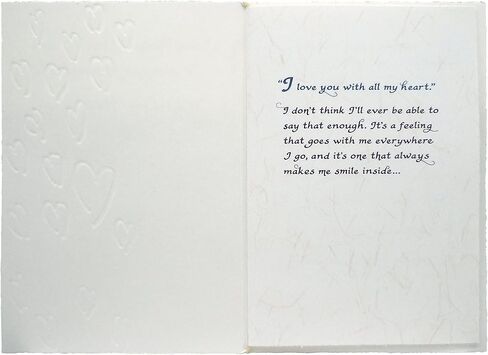 “I love you with all my heart.”
I don't think I'll ever be able to
say that enough. It's a feeling
that goes with me everywhere
I go, and it's one that always
makes me smile inside...